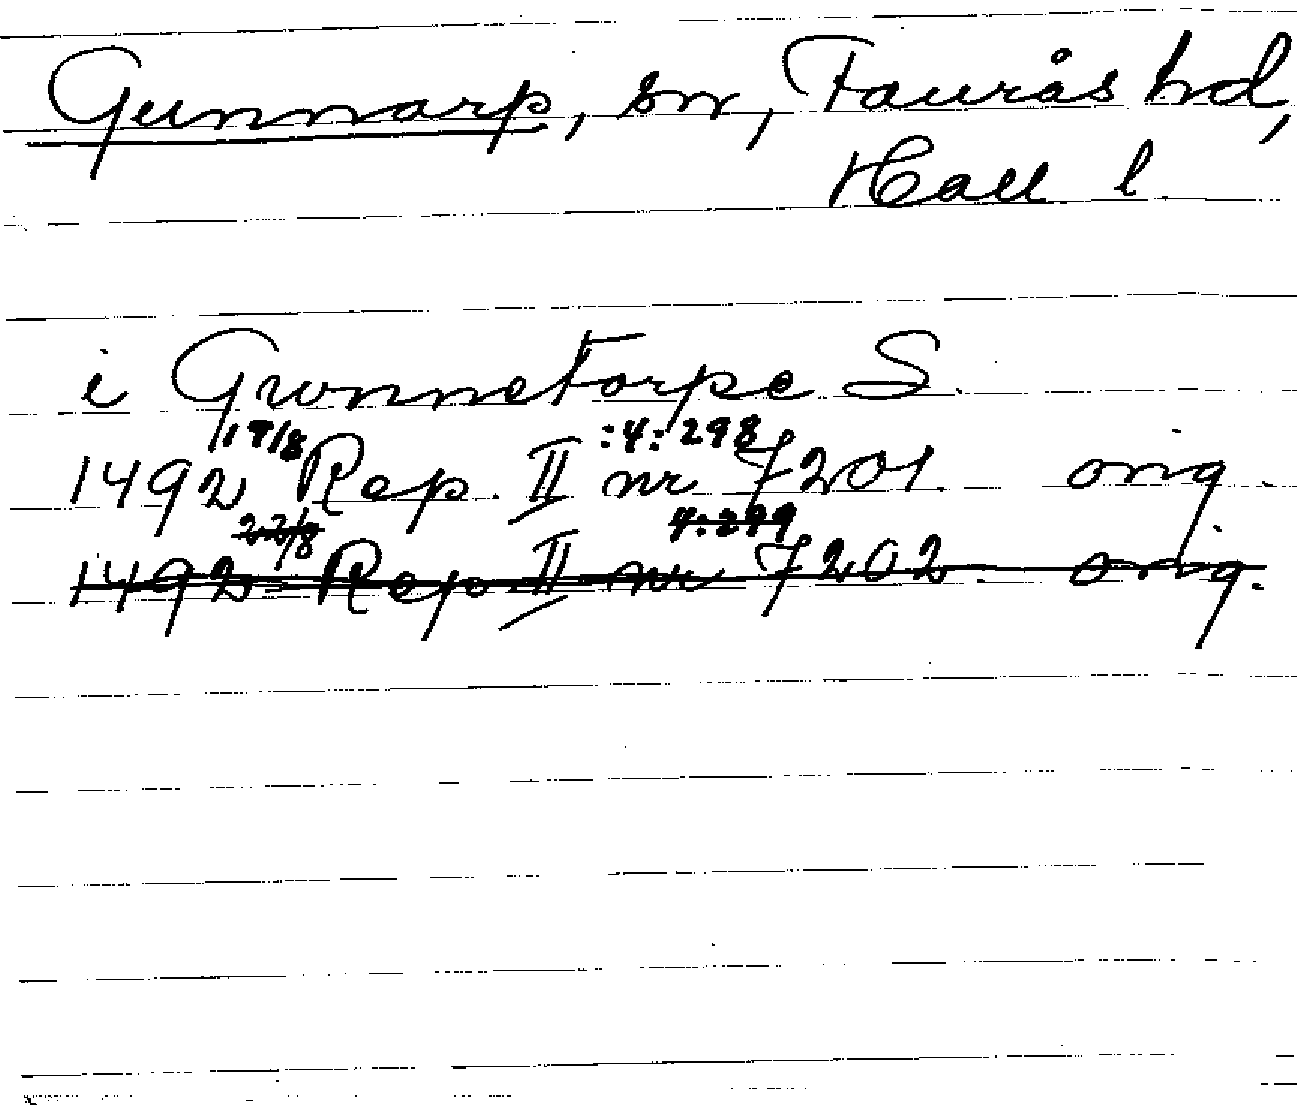 Gunnarp, sn, Faurås hd,
Hall l.
i Gwnnetorpe S.
17/8 :4: 298
1492 Rep. II nr 7201. orig.
22/8 4:299
1492 Rep. II nr 7202. orig.